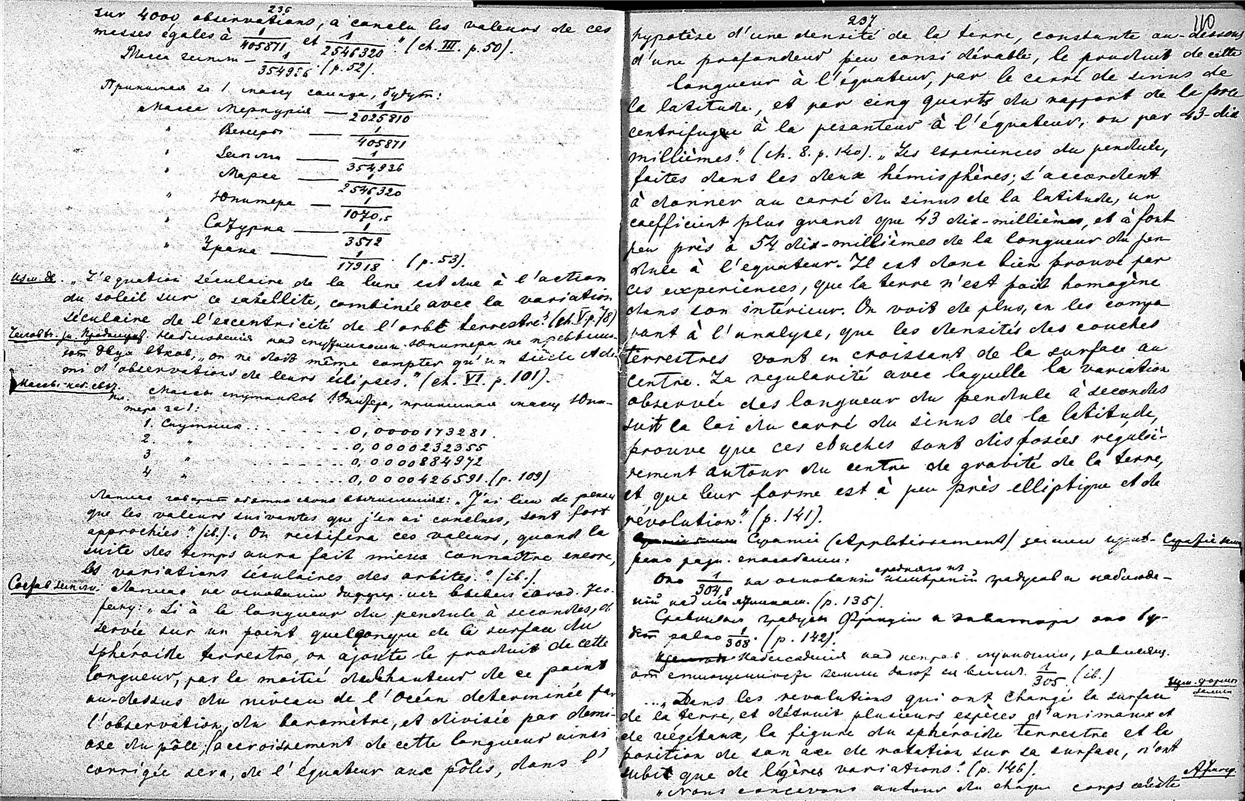 236
sur 4000 observations, a conclu les valeurs de ces
messes égales à 1/405871 et 1/2546320." (ch. III. p. 50).
Масса земли — 1/354936. (p. 52).
Принимая за 1 массу солнца, будут:
Масса Меркурия — 1/2025810
" Венеры — 1/405871
" Земли — 1/354936
" Марса — 1/2546320
" Юпитера — 1/1070,5
" Сатурна — 1/3512
" Урана — 1/17918. (p. 53).
„L'equation séculaire de la lune est due à l'action
du soleil sur ce satellite, combinée avec la variation
séculaire de l'excentricité de l'orbe terrestre." (ch. V. p. 78)
Наблюдения над спутниками Юпитера не
двух веков, „on ne doit même compter qu'un siècle et de-
mi d'observations de leurs éclipses." (ch. VI. p. 101).
Массы спутников Юпитера, принимая массу Юпи-
тера за 1:
1. Спутника . . . . . 0,0000173281.
2. " . . . . . 0,0000232355
3 " . . . . . 0,0000884972
4 " . . . . . 0,0000426591. (p. 109)
Лаплас говорит относительно вычисления: „J'ai lieu de penser
que les valeurs suivantes que j'en ai conclues, sont fort
approchées" (ib.). „On rectifira ces valeurs, quand la
suite des temps aura fait mieux connaître encore,
les variations séculaires des orbites." (ib.)
Лаплас на основании
„Si à la longueur du pendule à secondes, ob-
servée sur un point quelconque de la surface du
sphéroïde terrestre, on ajoute le produit de cette
longueur, par la moitié de la hauteur de ce point
au-dessus du niveau de l'Océan déterminée par
l'observation du baromètre, et divisée par demi-
axe du pôle, l'accroissement de cette longueur ainsi
corrigée sera, de l'équateur aux pôles, dans l'
237
110
hypotèze d'une densité de la terre, constante au-dessous
d'une profondeur peu considérable, le produit de cette
longueur à l'équateur, par le carré de sinus de
la latitude, et par cinq quarts du rapport de la force
centrifuge à la pesanteur à l'équateur, ou par 43-dix
millièmes." (ch. 8. p. 140). „Les experiences du pendule,
faites dans les deux hémisphères, s'accordent
à donner au carré du sinus de la latitude, un
coefficient plus grand que 43 dix-millièmes, et à fort
peu près à 54 dix-millièmes de la longueur du pen
dule à l'équateur. Il est donc bien prouvé par
ces experiences, que la terre n'est point homogène
dans son intérieur. On voit de plus, en les compa
rant à l'analyse, que les densités des couches
terrestres vont en croissant de la surface au
centre. La regularité avec laquelle la variation
observée des longueur du pendule à secondes
suit la loi du carré du sinus de la latitude,
prouve que ces couches sont disposées réguliè-
rement autour du centre de gravité de la terre,
et que leur forme est à peu près elliptique et de
révolution." (p. 141).
(Applatissement) земли
Оно 1/304,8 на основании измерений градусов и наблюде-
ний над маятником. (p. 135).
Сравнивая градусы Франции и экватора оно бу-
дет равно 1/308. (p. 142).
Наблюдения над
земли 1/305 (ib.)
... „Dans les revolutions qui ont changé la surface
de la terre, et détruit plusieurs espèces d'animaux et
de végétaux, la figure du sphéroide terrestre et la
position de son axe de rotation sur sa surface, n'ont
subit que de légères variations." (p. 146).
„Nous concevons autour du chaque corps céleste